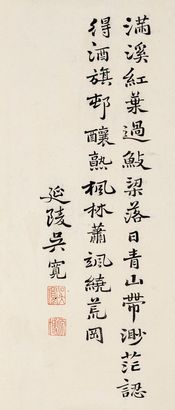 滿溪紅葉過魰梁落日青山帶渺茫認
得酒旗邨釀熟楓林蕭颯繞荒岡
延陵吳寬